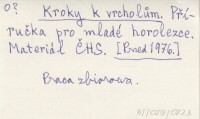 o? Kroky k vrcholům. Pří-
ručka pro mladé horolezce.
Materiál ČHS. [Pned 1976.]
Praca zbiorowa.